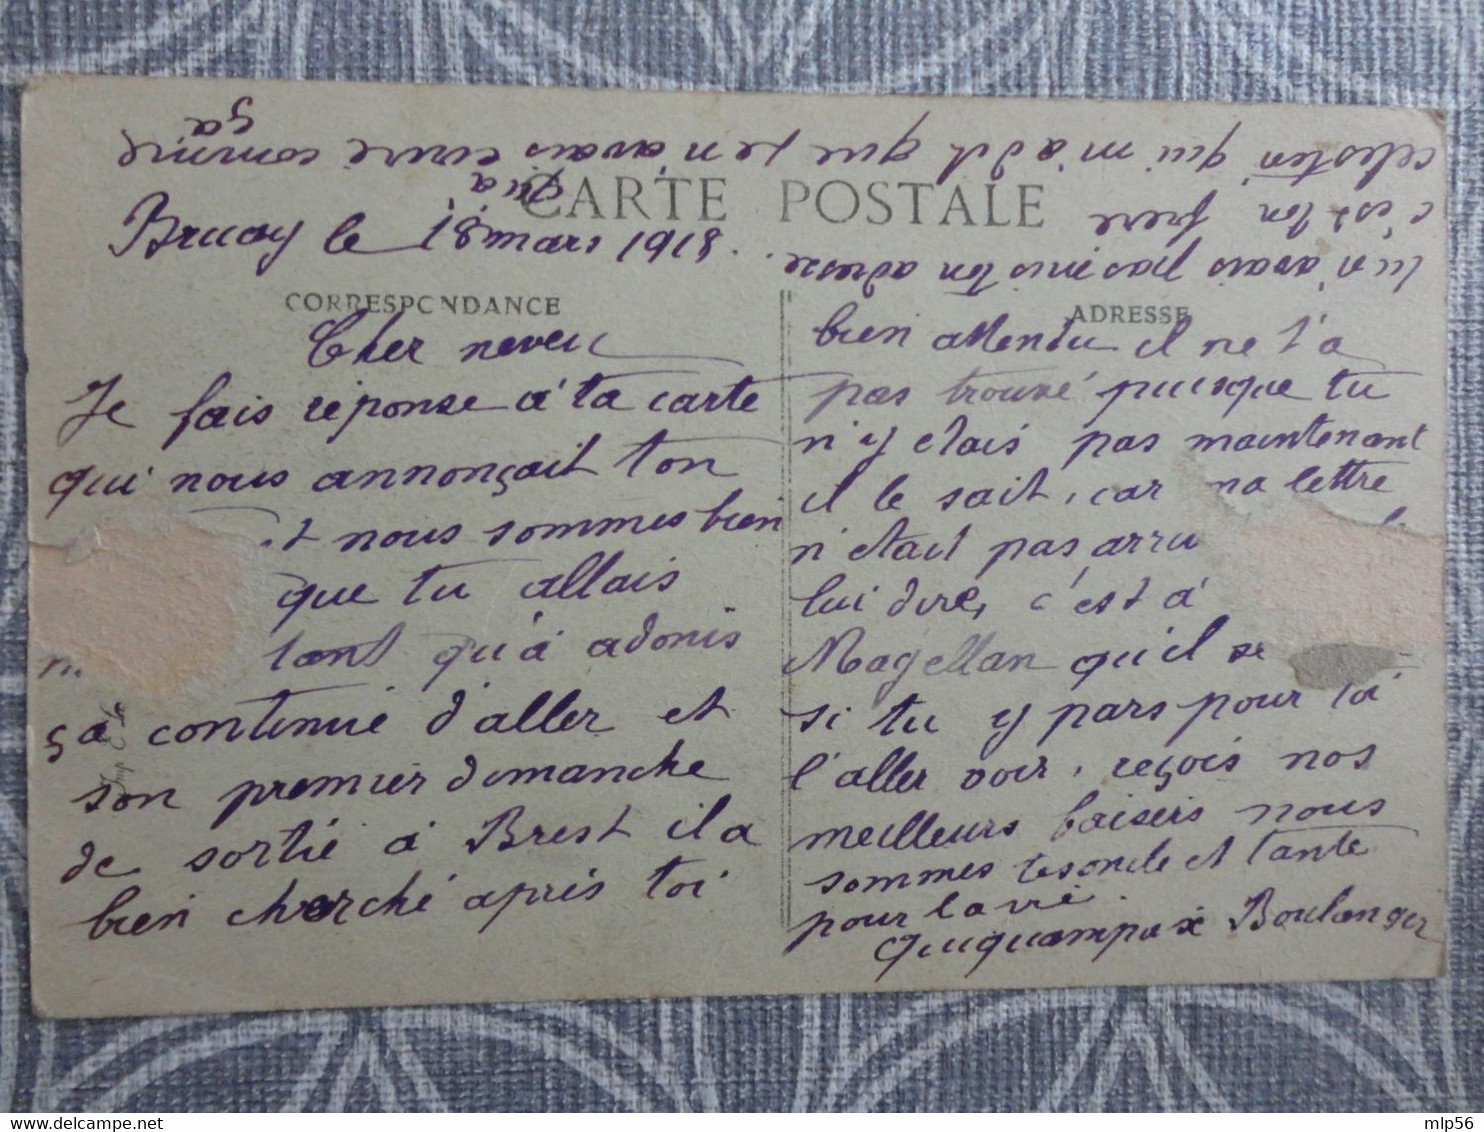 CARTE POSTALE
Bruay le 18 mars 1918.
CORRESPONDANCE
ADRESSE
Cher neveu
Je fais réponse à ta carte
qui nous annonçait ton
nous sommes bien
que tu allais
tant qu'à adonis
ça continue d'aller et
son premier dimanche
de sortie à Brest il a
bien cherché après toi
bien attendu il ne t'a
pas trouvé puisque tu
n'y etais pas maintenant
il le sait, car ma lettre
n'etait pas arri
lui dire, c'est à
Magellan qu'il se
si tu y pars pour toi
l'aller voir, reçois nos
meilleurs baisers nous
sommes tes oncle et tante
pour la vie
Quiquampoix Boulanger
tu n'avais pas mis ton adresse
c'est ton frere
celestin qui m'a dit que je n'avais ecrire comme
ça
mlp56